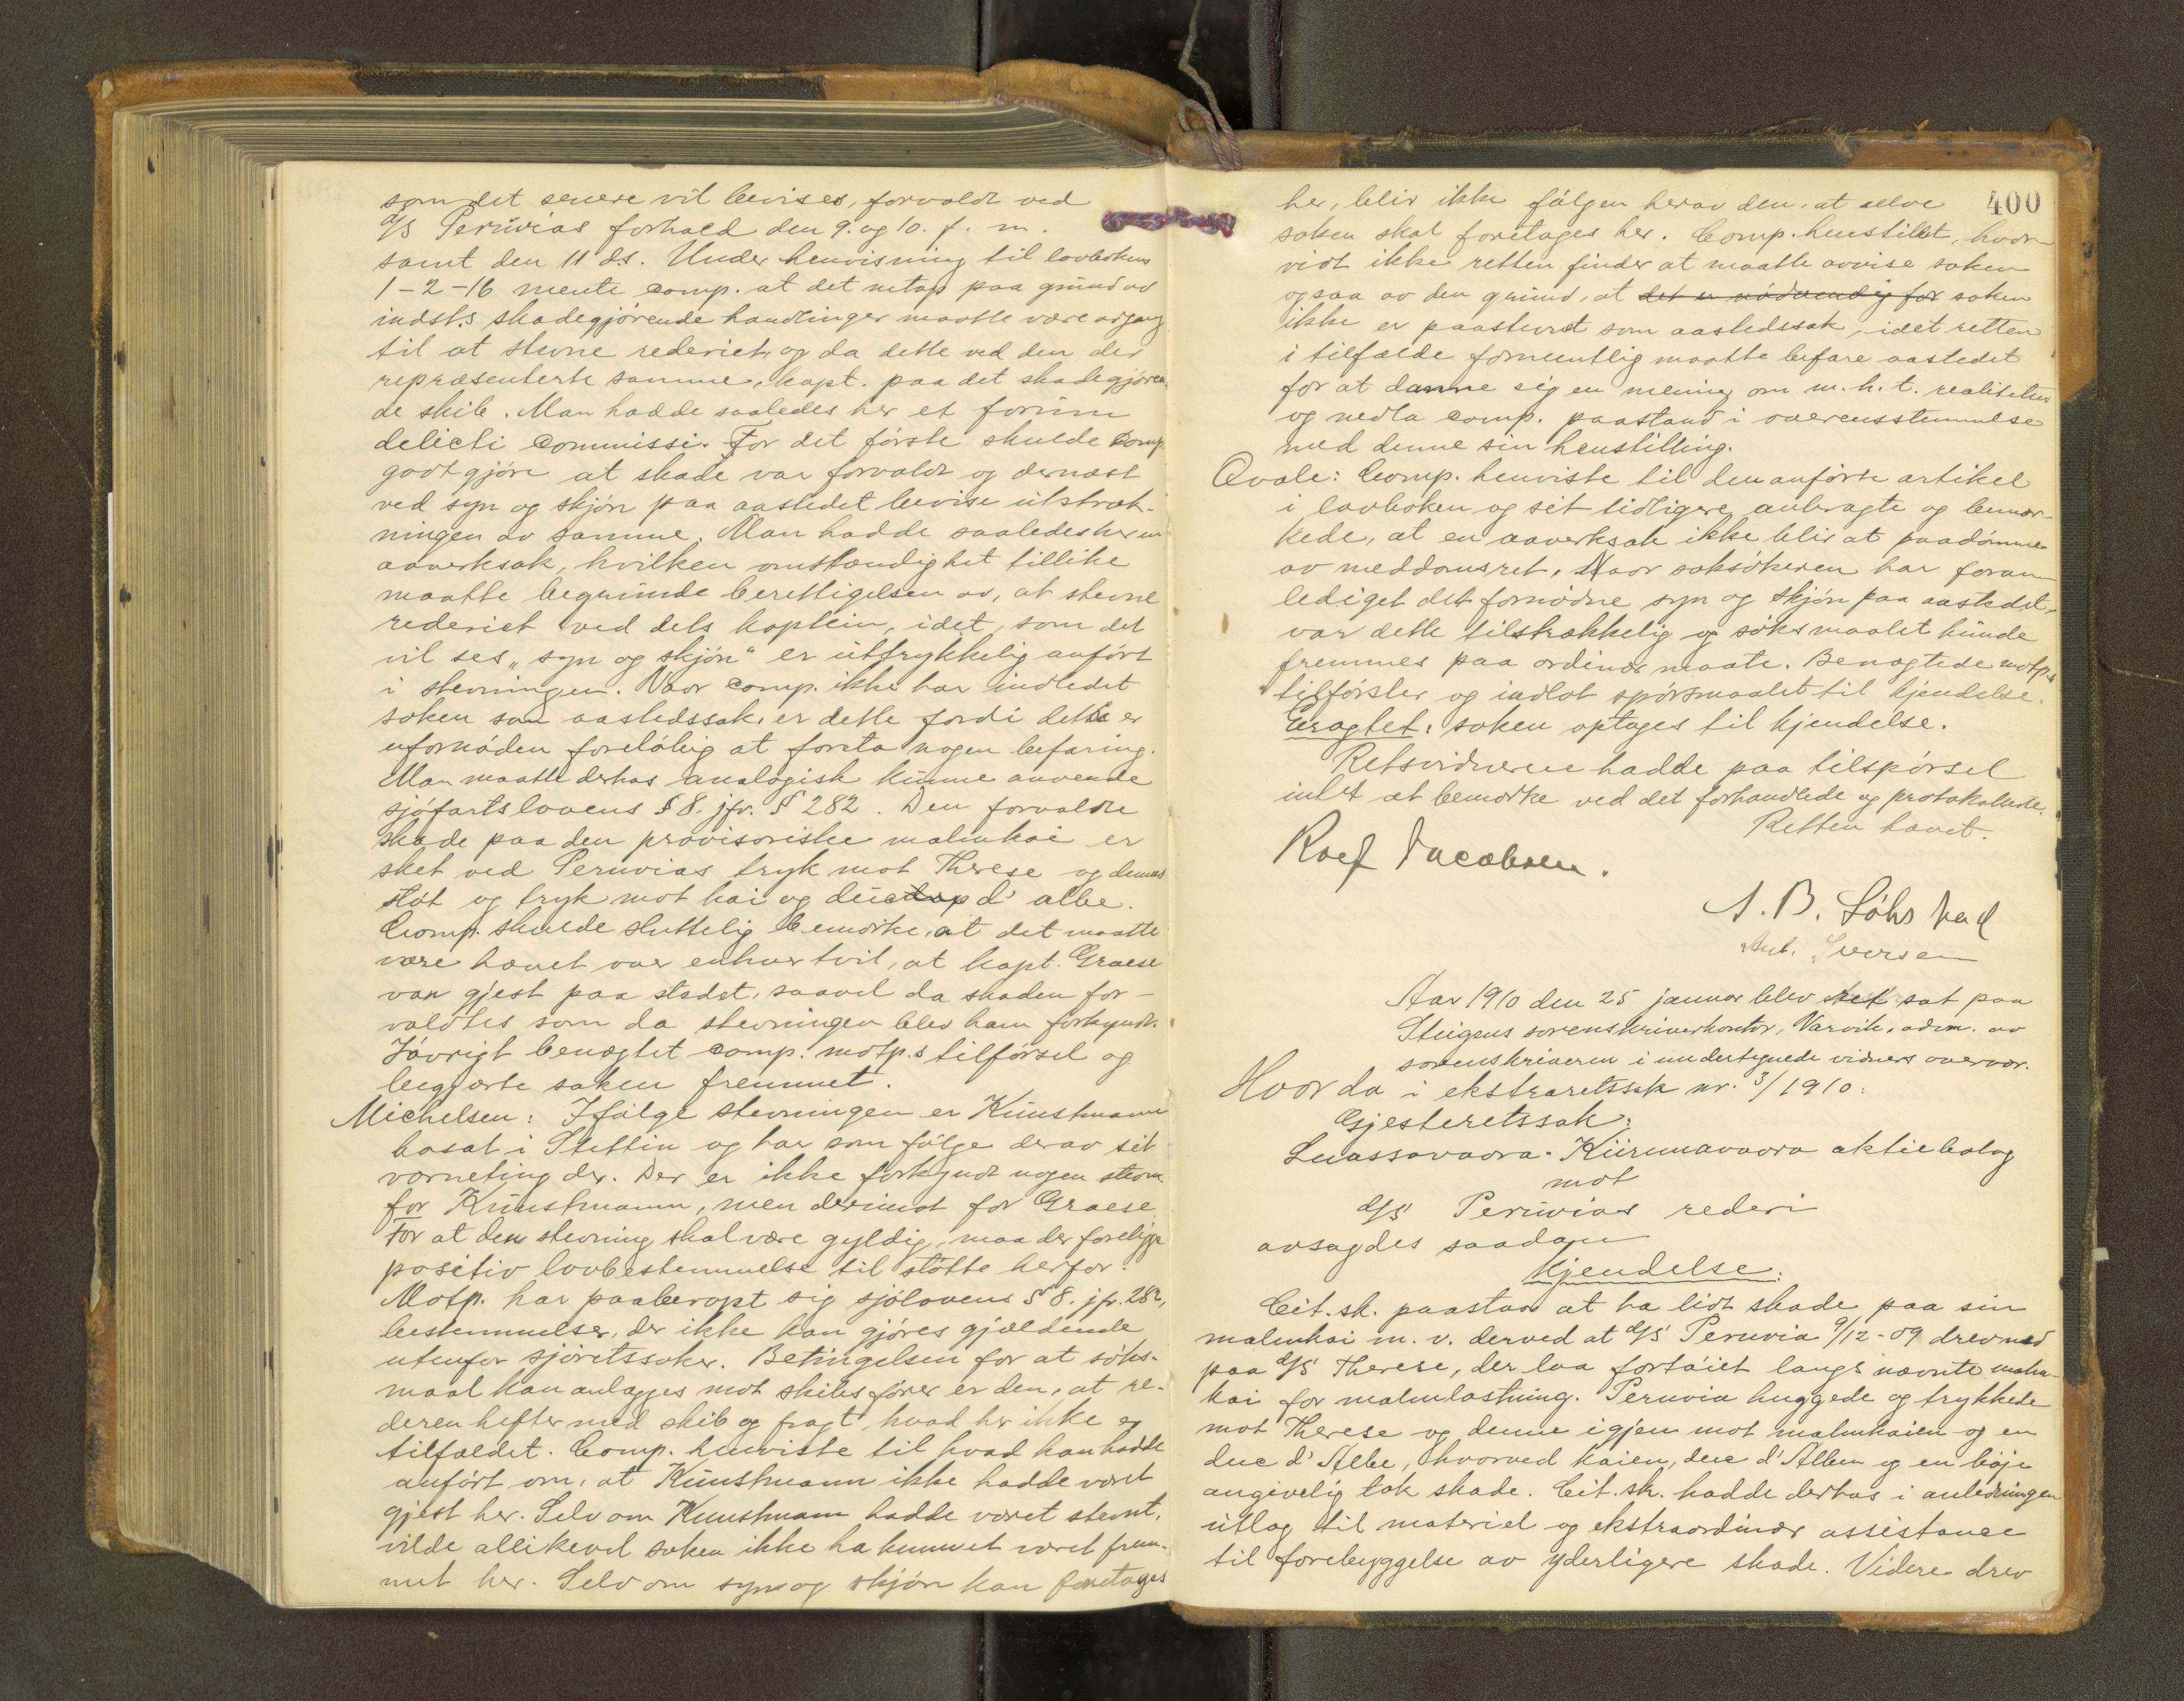 som det senere vil bevises, forvoldt ved
d/s Peruvias forhold den 9. og 10. f. m.
samt den 11 ds. Under henvisning til lovbokens
1-2-16 mente comp. at det netop paa grund av
indst.s skadegjørende handlinger maatte være adgang
til at stevne rederiet, og da dette ved den der
repræsenterte samme, kapt. paa det skadegjøren
de skib. Man hadde saaledes her et forum
delicti commissi. For det første skulde comp.
godtgjøre at skade var forvoldt og dernæst
ved syn og skjøn paa aastedet bevise utstræk-
ningen av samme. Man hadde saaledes her en
aaverksak, hvilken omstændighet tillike
maatte begrunde berettigelsen av, at stevne
rederiet ved dets kaptein, idet, som det
vil ses "syn og skjøn" er uttrykkelig anført
i stevningen. Naar comp. ikke har indledet
saken som aastedssak, er dette fordi dette er
ufornøden foreløbig at foreta nogen befaring.
Man maatte derhos analogisk kunne anvende
sjøfartslovens § 8. jfr. § 282. Den forvoldte
skade paa den provisoriske malmkai er
sket ved Peruvias tryk mot Therese og dennes
støt og tryk mot kai og duc d'albe.
Comp. skulde sluttelig bemerke, at det maatte
være hævet over enhver tvil, at kapt. Graese
var gjest paa stedet, saavel da skaden for-
voldtes som da stevningen blev ham forkyndt.
Iøvrigt benægtet comp. motp.s tilførsel og
begjærte saken fremmet.
Michelsen: Ifølge stevningen er Kunstmann
bosat i Stettin og har som følge derav sit
verneting der. Der er ikke forkyndt nogen stevn.
for Kunstmann, men derimot for Graese.
For at den stevning skal være gyldig, maa der foreligge
positiv lovbestemmelse til støtte herfor.
Motp. har paaberopt sig sjølovens § 8. jfr. 282,
bestemmelser, der ikke kan gjøres gjældende
utenfor sjøretssaker. Betingelsen for at søks-
maal kan anlægges mot skibsfører er den, at re-
deren hefter med skib og fragt, hvad her ikke er
tilfældet. Comp. henviste til hvad han hadde
anført om, at Kunstmann ikke hadde været
gjest her. Selv om Kunstmann hadde været stevnt,
vilde allikevel saken ikke ha kunnet været frem-
met her. Selv om syn og skjøn kan foretages
400
her, blir ikke følgen herav den, at selve
saken skal foretages her. Comp. henstillet, hvor-
vidt ikke retten finder at maatte avvise saken
ogsaa av den grund, at det er nødvendig for saken
ikke er paastevnt som aastedssak, idet retten
i tilfælde formentlig maatte befare aastedet
for at danne sig en mening om m. h. t. realiteten
og nedla comp. paastand i overensstemmelse
med denne sin henstilling.
Qvale: Comp. henviste til den anførte artikel
i lovboken og sit tidligere anbragte og bemær-
kede, at en aaverksak ikke blir at paadømme
av meddomsret. Naar saksøkeren har foran-
lediget det fornødne syn og skjøn paa aastedet,
var dette tilstrækkelig og søksmaalet kunde
fremmes paa ordinær maate. Benægtede motp.s
tilførsler og indlot spørsmaalet til kjendelse.
Eragtet: saken optages til kjendelse.
Retsvidnerne hadde paa tilspørsel
intet at bemerke ved det forhandlede og protokollerte.
Retten hævet.
Roef Jacobsen.
A. B. Løhs
Ant. Iversen
Aar 1910 den 25 januar blev ret sat paa
Steigens sorenskriverkontor, Narvik, adm. av
sorenskriveren i undertegnede vidners overvær.
Hvor da i ekstraretssak nr. 3/1910:
Gjesteretssak:
Luossavaara-Kiirunavaara aktiebolag
mot
d/s Peruvias rederi
avsagdes saadan
Kjendelse:
Cit. sk. paastaar at ha lidt skade paa sin
malmkai m. v. derved at d/s Peruvia 9/12-09 drev ned
paa d/s Therese, der laa fortøiet langs nævnte malm-
kai for malmlastning. Peruvia huggede og trykkede
mot Therese og denne igjen mot malmkaien og en
duc d'Albe, hvorved kaien, duc d'Alben og en bøje
angivelig tok skade. Cit. sk. hadde derhos i anledningen
utlæg til materiel og ekstraordinær assistance
til forebyggelse av yderligere skade. Videre drev